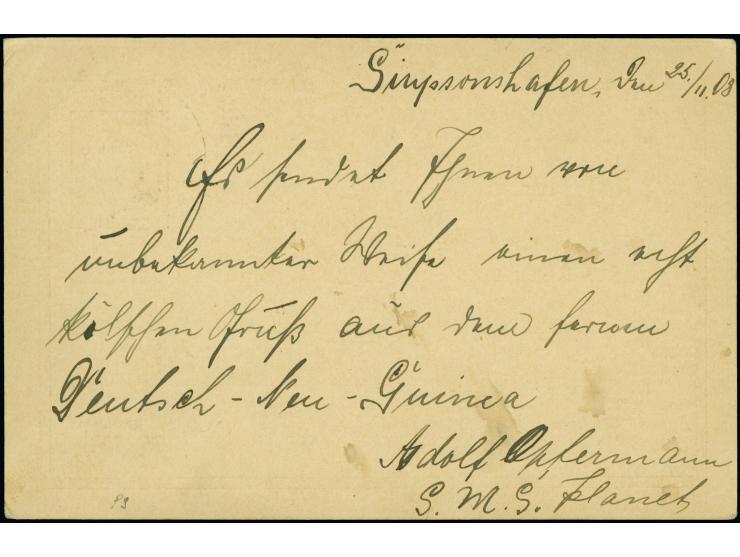 Simpsonshafen, den 25./11.08
Es sendet Ihnen von
unbekannter Weise einen echt
kölschen Gruß aus dem fernen
Deutsch-Neu-Guinea
Adolf Opfermann
S.M.S. Planet